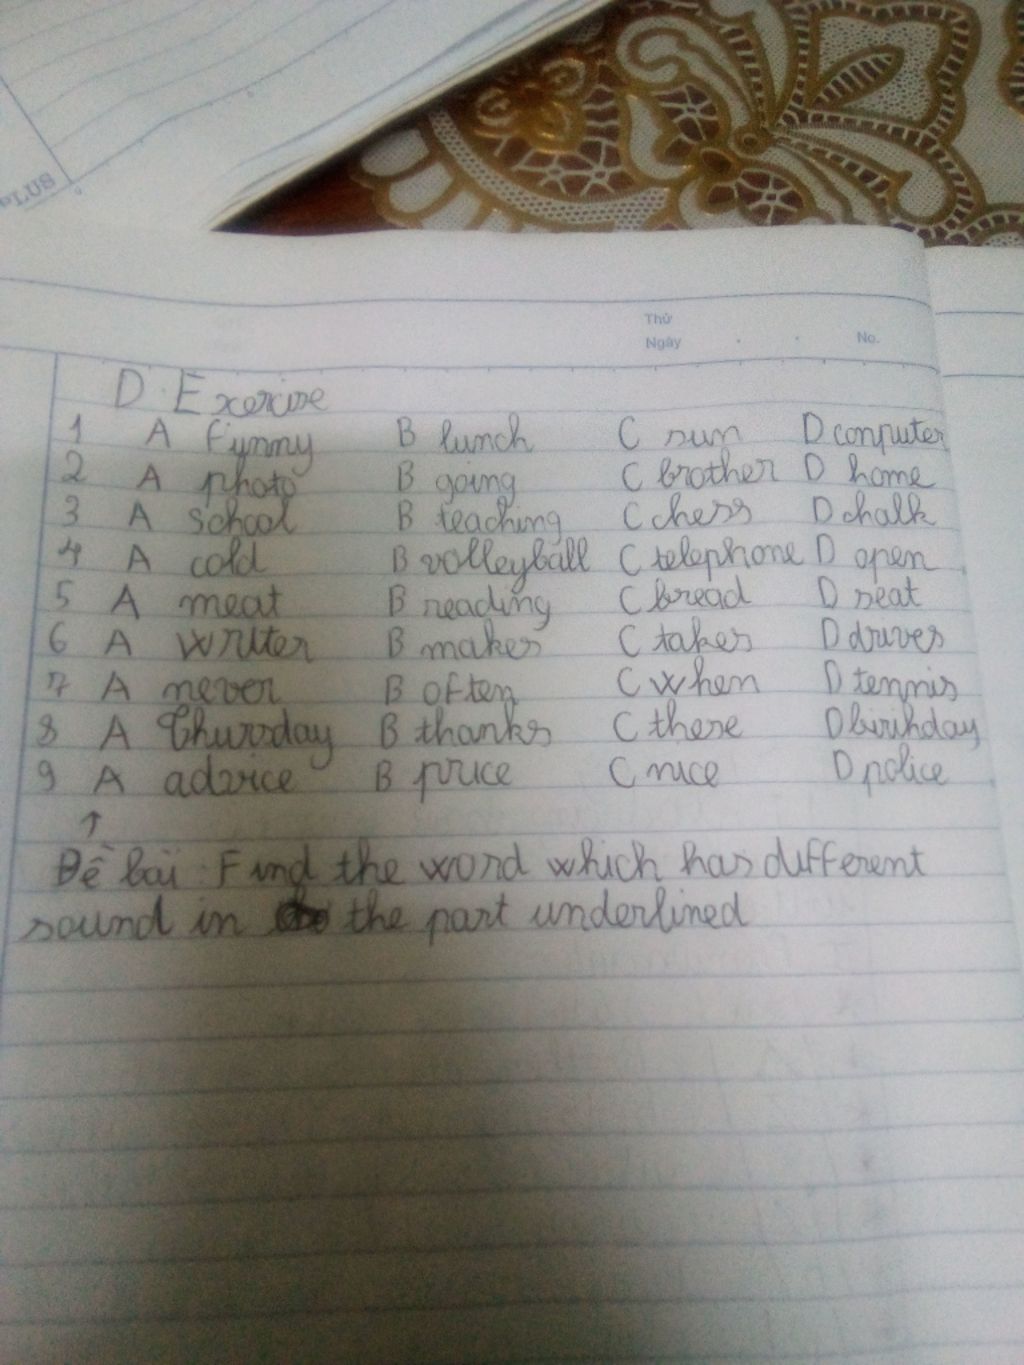 Thứ
Ngày No.
D. Exercise
1 A funny B lunch C sun D computer
2 A photo B going C brother D home
3 A school B teaching C chess D chalk
4 A cold B volleyball C telephone D open
5 A meat B reading C bread D seat
6 A writes B makes C takes D drives
7 A never B often C when D tennis
8 A Thursday B thanks C these D birthday
9 A advice B price C nice D police
Đề bài: Find the word which has different
sound in the part underlined